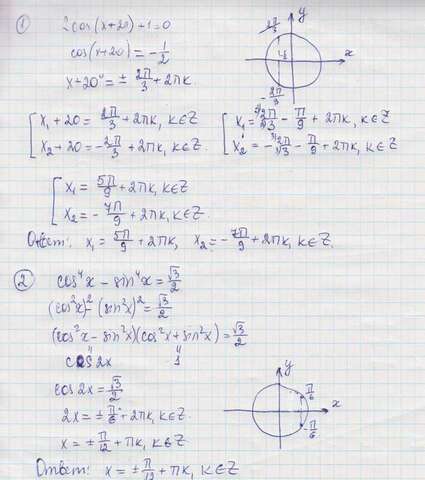 ① 2cos(x+20)+1=0
cos(x+20)=-1/2
x+20°=± 2π/3 + 2πk.
[ x₁+20= 2π/3 +2πk, k∈Z
x₂+20=-2π/3 +2πk, k∈Z.
[ x₁= ³⁾2π/3 - π/9 + 2πk, k∈Z
x₂= -³⁾2π/3 - π/9 + 2πk, k∈Z.
[ x₁= 5π/9 +2πk, k∈Z
x₂= - 7π/9 +2πk, k∈Z.
Ответ: x₁= 5π/9 +2πk, x₂=- 7π/9 +2πk, k∈Z.
y
x
2π/3
-½
- 2π/3
② cos⁴x - sin⁴x= √3/2
(cos²x)² - (sin²x)²= √3/2
(cos²x - sin²x)(cos²x+sin²x)= √3/2
" "
cos2x 1
cos 2x= √3/2
2x= ± π/6 + 2πk, k∈Z.
x= ± π/12 + πk, k∈Z
Ответ: x= ± π/12 + πk, k∈Z
y
x
π/6
-π/6